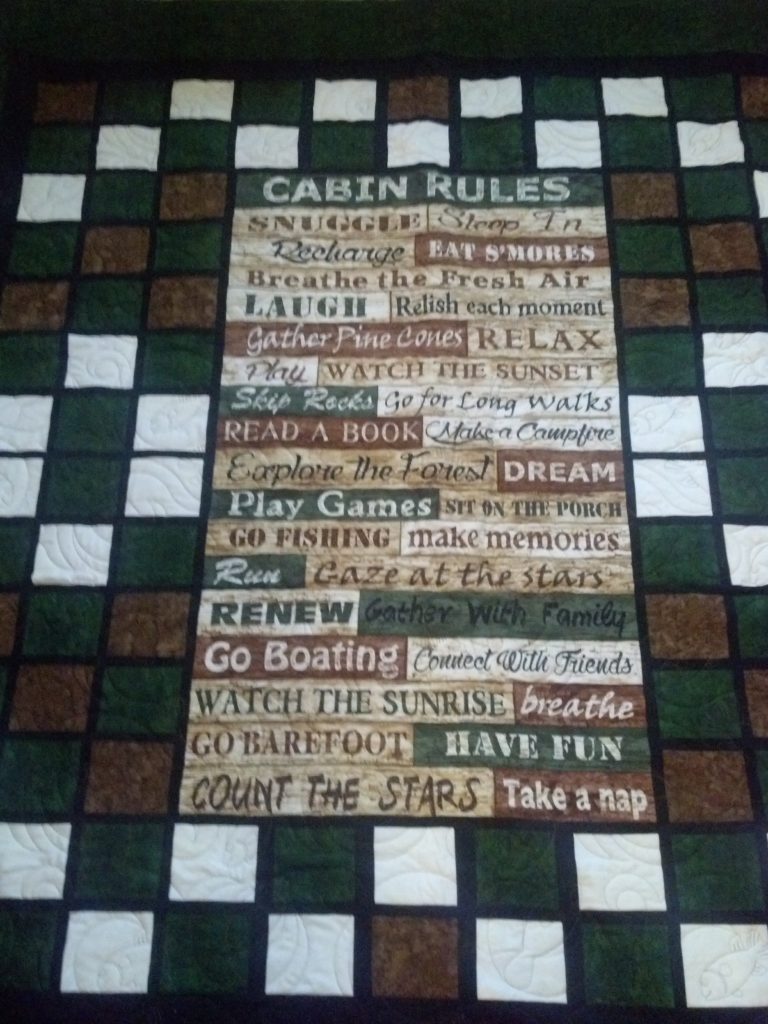 CABIN RULES
SNUGGLE Sleep In
Recharge EAT S'MORES
Breathe the Fresh Air
LAUGH Relish each moment
Gather Pine Cones RELAX
Play WATCH THE SUNSET
Skip Rocks Go for Long Walks
READ A BOOK Make a Campfire
Explore the Forest DREAM
Play Games SIT ON THE PORCH
GO FISHING make memories
Run Gaze at the stars
RENEW Gather With Family
Go Boating Connect With Friends
WATCH THE SUNRISE breathe
GO BAREFOOT HAVE FUN
COUNT THE STARS Take a nap